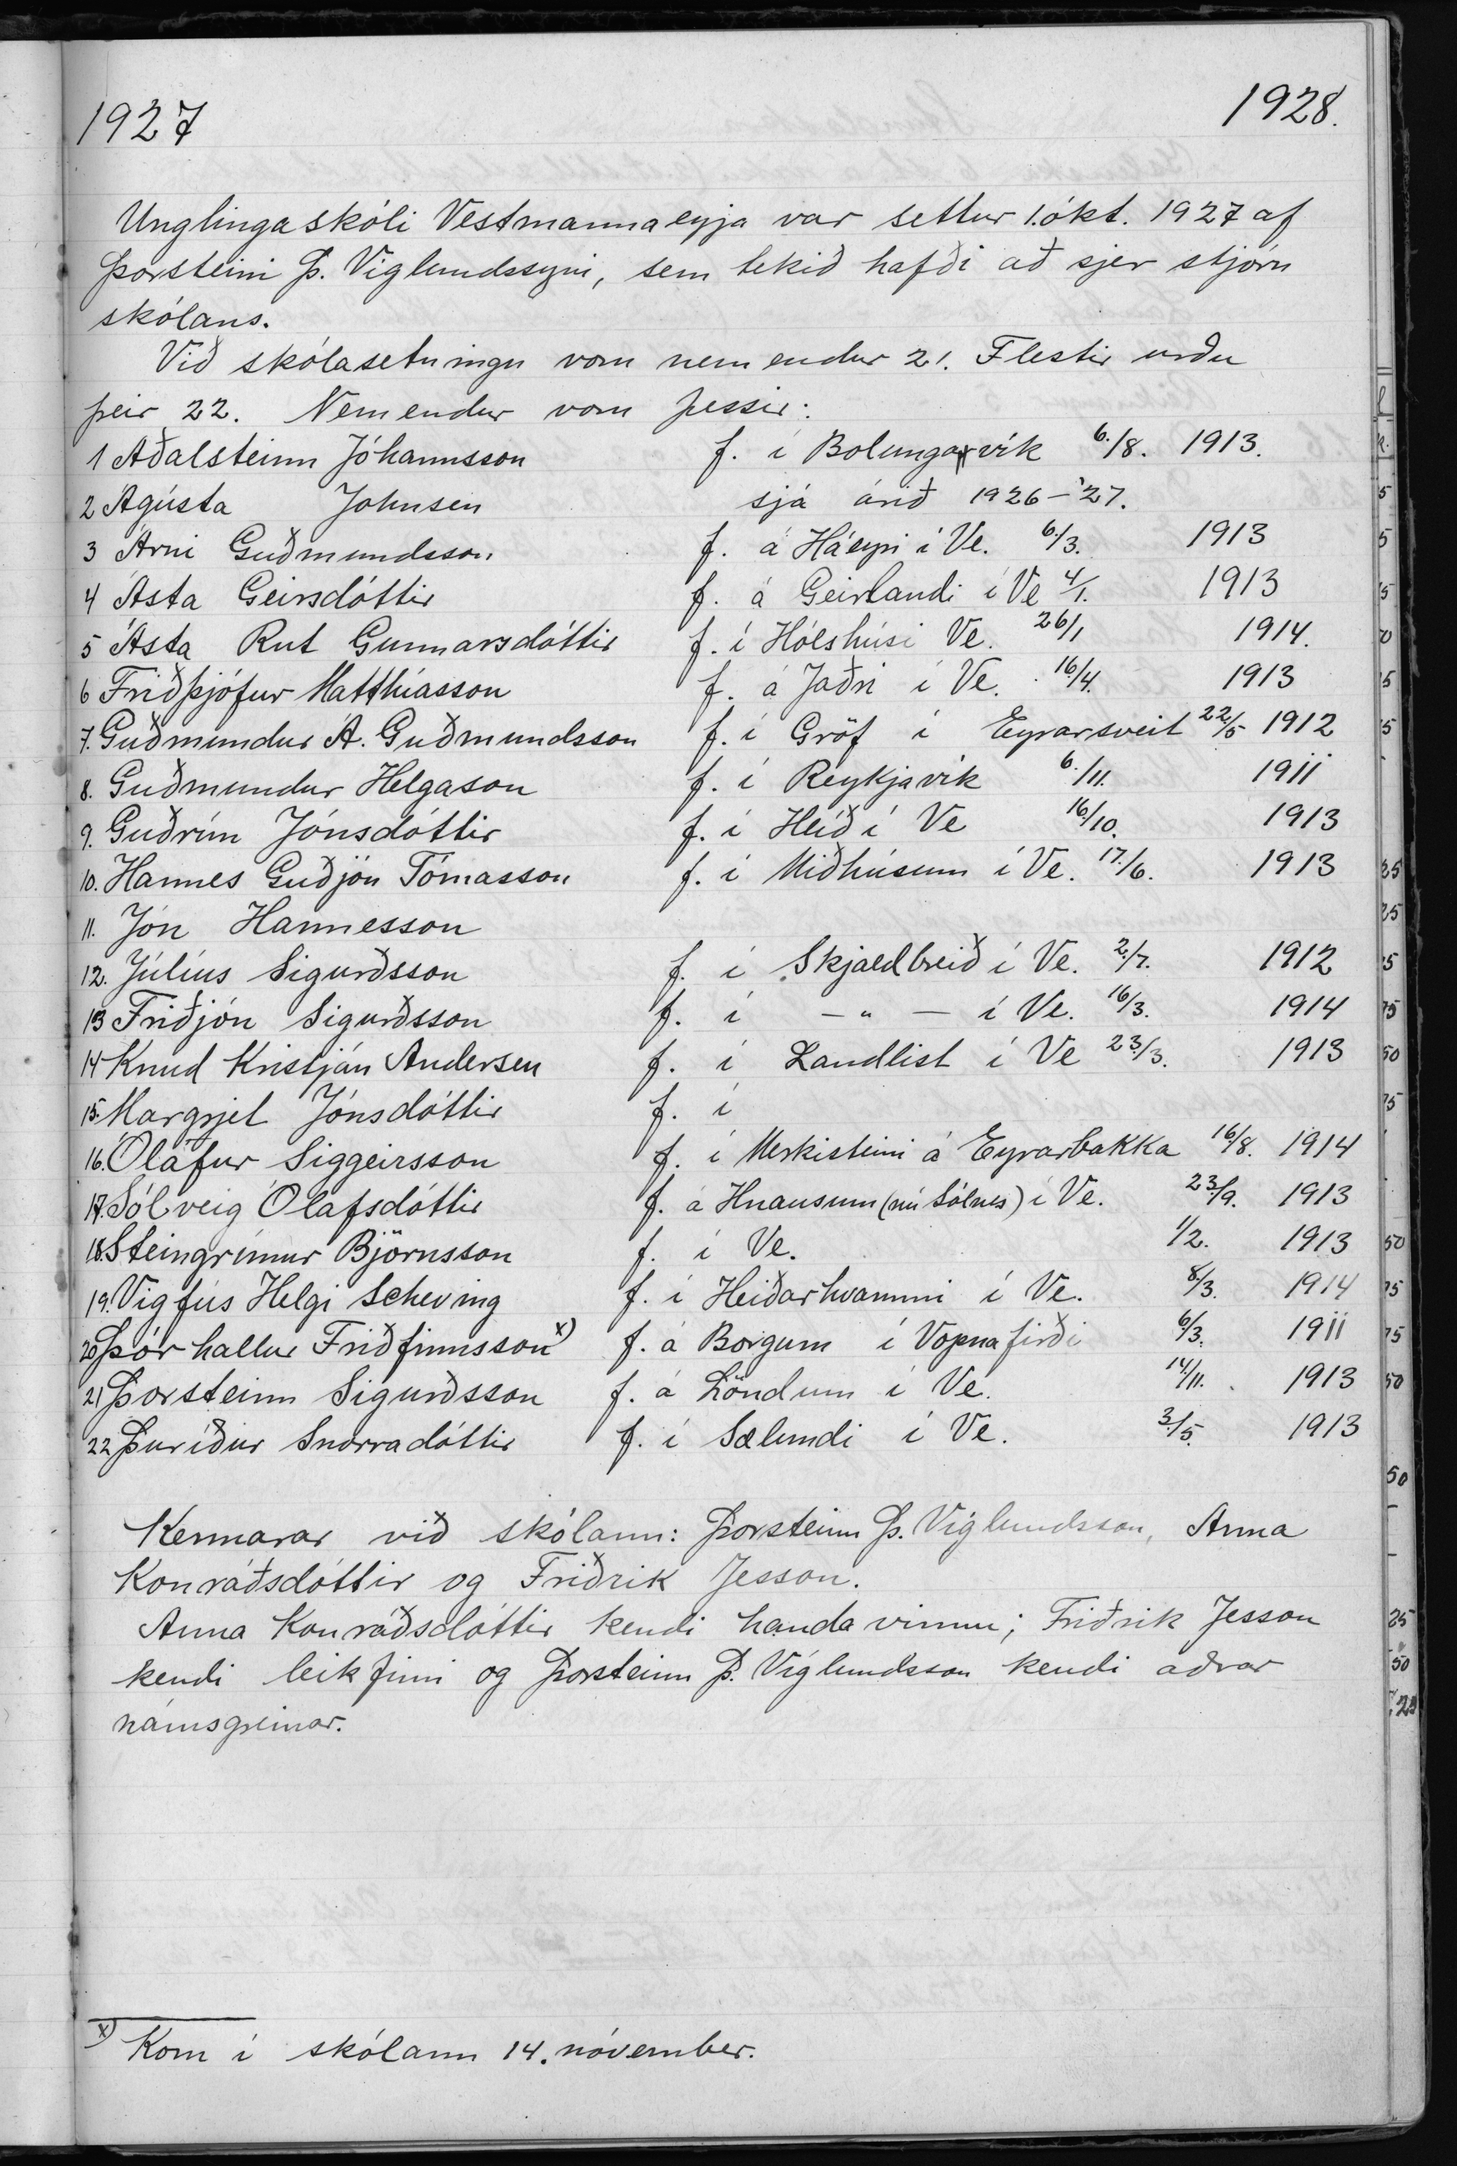 1927 1928.
Unglingaskóli Vestmannaeyja var settur 1. ókt. 1927 af
Þorsteini Þ. Víglundssyni, sem tekið hafði að sjer stjórn
skólans.
Við skólasetningu voru nemendur 21. Flestir urðu
þeir 22. Nemendur voru þessir:
1 Aðalsteinn Jóhannsson f. í Bolungarvík 6./8. 1913.
2 Ágústa Johnsen sjá árið 1926-'27.
3 Árni Guðmundsson f. á Háeyri í Ve. 6./3. 1913
4 Ásta Geirsdóttir f. á Geirlandi í Ve 4/1. 1913
5 Ásta Rut Gunnarsdóttir f. í Hólshúsi Ve. 26/1 1914.
6 Friðþjófur Matthíasson f. á Jaðri í Ve. 16/4. 1913
7. Guðmundur Á. Guðmundsson f. í Gröf í Eyrarsveit 22/5 1912
8. Guðmundur Helgason f. í Reykjavík 6./11. 1911
9. Guðrún Jónsdóttir f. í Hlíð í Ve 16/10. 1913
10. Hannes Guðjón Tómasson f. í Miðhúsum í Ve. 17./6. 1913
11. Jón Hannesson
12. Júlíus Sigurðsson f. í Skjaldbreið í Ve. 2./7. 1912
13 Friðjón Sigurðsson f. í - " - í Ve. 16/3. 1914
14 Knud Kristján Andersen f. í Landlist í Ve 23/3. 1913
15. Margrjet Jónsdóttir f. í
16. Ólafur Siggeirsson f. í Merkisteini á Eyrarbakka 16/8. 1914
17. Sólveig Ólafsdóttir f. á Hnausum (nú Sólnes) í Ve. 23/9. 1913
18. Steingrímur Björnsson f. í Ve. 1/2. 1913
19. Vigfús Helgi Scheving f. í Heiðarhvammi í Ve. 8/3. 1914
20 Þórhallur Friðfinnsson x) f. á Borgum í Vopnafirði 6/3. 1911
21 Þorsteinn Sigurðsson f. á Löndum í Ve. 14/11. 1913
22 Þuríður Snorradóttir f. í Sælundi í Ve. 3./5. 1913
Kennarar við skólann: Þorsteinn Þ. Víglundsson, Anna
Konráðsdóttir og Friðrik Jesson.
Anna Konráðsdóttir kendi handavinnu; Friðrik Jesson
kendi leikfimi og Þorsteinn Þ. Víglundsson kendi aðrar
námsgreinar.
x) Kom í skólann 14. nóvember.